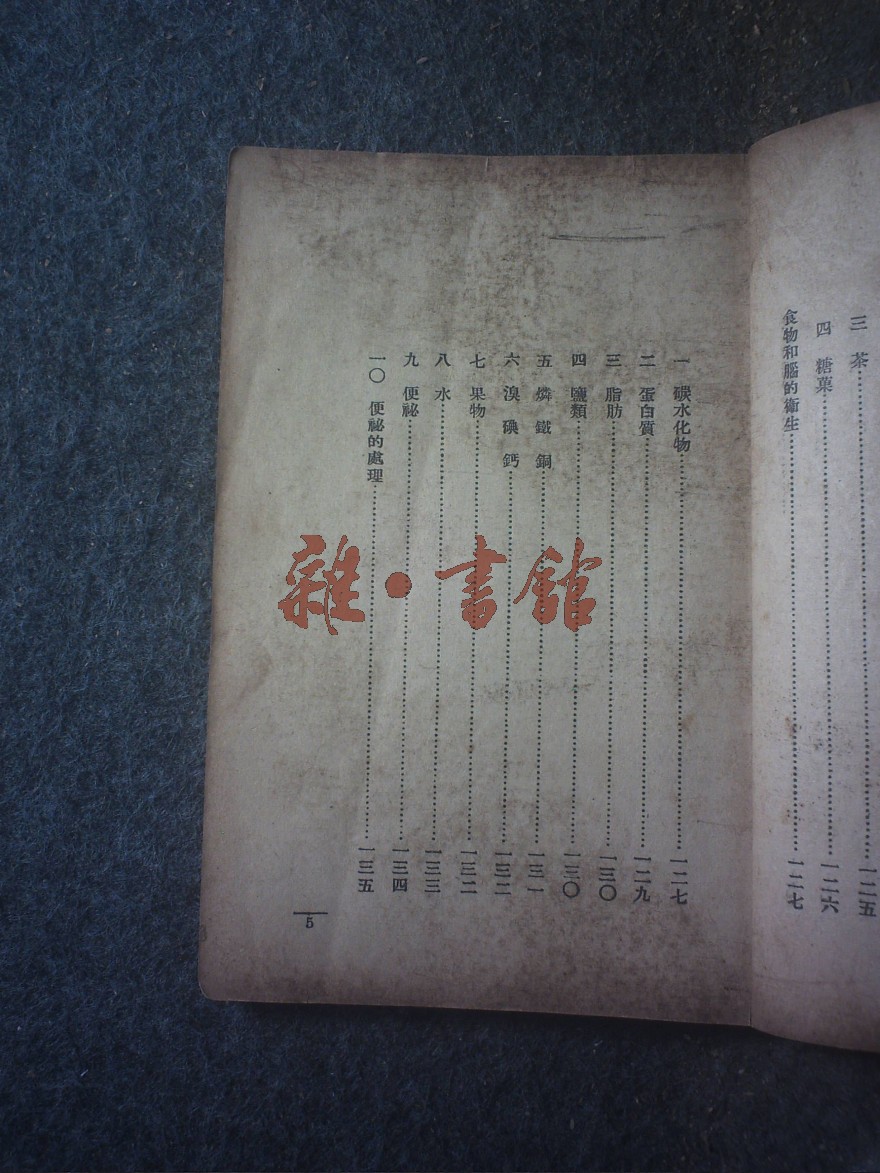 三 茶 一二五
四 糖菓 一二六
食物和腦的衞生 一二七
一 碳水化物 一二七
二 蛋白質 一二九
三 脂肪 一三〇
四 鹽類 一三〇
五 燐 鐵 銅 一三一
六 溴 碘 鈣 一三二
七 果物 一三二
八 水 一三三
九 便祕 一三四
一〇 便祕的處理 一三五
5
雜·書館